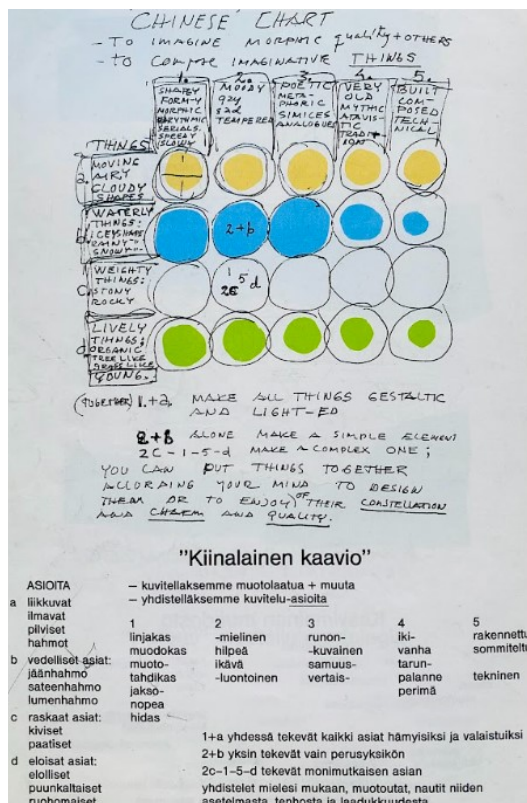 CHINESE" CHART
- TO IMAGINE MORPHIC quality + OTHERS
- to COMPOSE IMAGINATIVE THINGS
1. 2. 3. 4. 5.
SHAPEY
FORM-Y
MORPHIC
RHYTHMIC
SERIALS.
SPEEDY
SLOWLY
MOODY
gay
sad
TEMPERED
POETIC
META-
PHORIC
SIMILES
ANALOGUES
VERY
OLD
MYTHIC
ATAVIS-
TIC
TRADIT-
ION
BUILT
COM-
POSED
TECH-
NICAL
THINGS
a MOVING
AIRY
CLOUDY
SHAPES
b WATERLY
THINGS:
ICEY SHAPE
RAINY -"-
SNOWY -"-
2+b
c WEIGHTY
THINGS:
STONY
ROCKY
1
2C 5 d
d LIVELY
THINGS;
ORGANIC
TREE LIKE
GRASS LIKE
YOUNG.
(TOGETHER) 1.+a. MAKE ALL THINGS GESTALTIC
AND LIGHT-ED
2+b ALONE MAKE A SIMPLE ELEMENT
2C-1-5-d MAKE A COMPLEX ONE;
YOU CAN PUT THINGS TOGETHER
ACCORDING YOUR MIND TO DESIGN
THEM OR TO ENJOY OF THEIR CONSTELLATION
AND CHARM AND QUALITY.
"Kiinalainen kaavio"
ASIOITA – kuvitellaksemme muotolaatua + muuta
– yhdistelläksemme kuvitelu-asioita
a liikkuvat
ilmavat
pilviset
hahmot
b vedelliset asiat:
jäänhahmo
sateenhahmo
lumenhahmo
c raskaat asiat:
kiviset
paatiset
d eloisat asiat:
elolliset
puunkaltaiset
ruohomaiset
1
linjakas
muodokas
muoto-
tahdikas
jaksö-
nopea
hidas
2
-mielinen
hilpeä
ikävä
-luontoinen
3
runon-
-kuvainen
samuus-
vertais-
4
iki-
vanha
tarun-
palanne
perimä
5
rakennettu
sommiteltu
tekninen
1+a yhdessä tekevät kaikki asiat hämyisiksi ja valaistuiksi
2+b yksin tekevät vain perusyksikön
2c-1-5-d tekevät monimutkaisen asian
yhdistelet mielesi mukaan, muotoutat, nautit niiden
asetelmasta, tenhosta ja laadukkuudesta